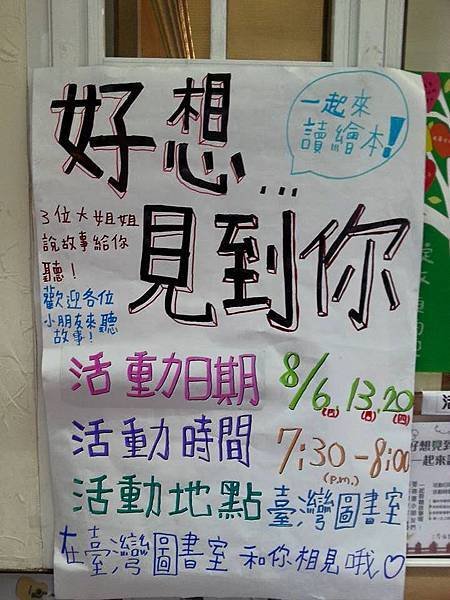 好想…
見到你
一起來
讀繪本！
3位大姐姐
說故事給你
聽！
歡迎各位
小朋友來聽
故事！
活動日期 8/6(四).13(四).20(四)
活動時間 7:30-8:00
(p.m.)
活動地點 臺灣圖書室
在臺灣圖書室 和你相見哦♡
好想見到
一起來讀